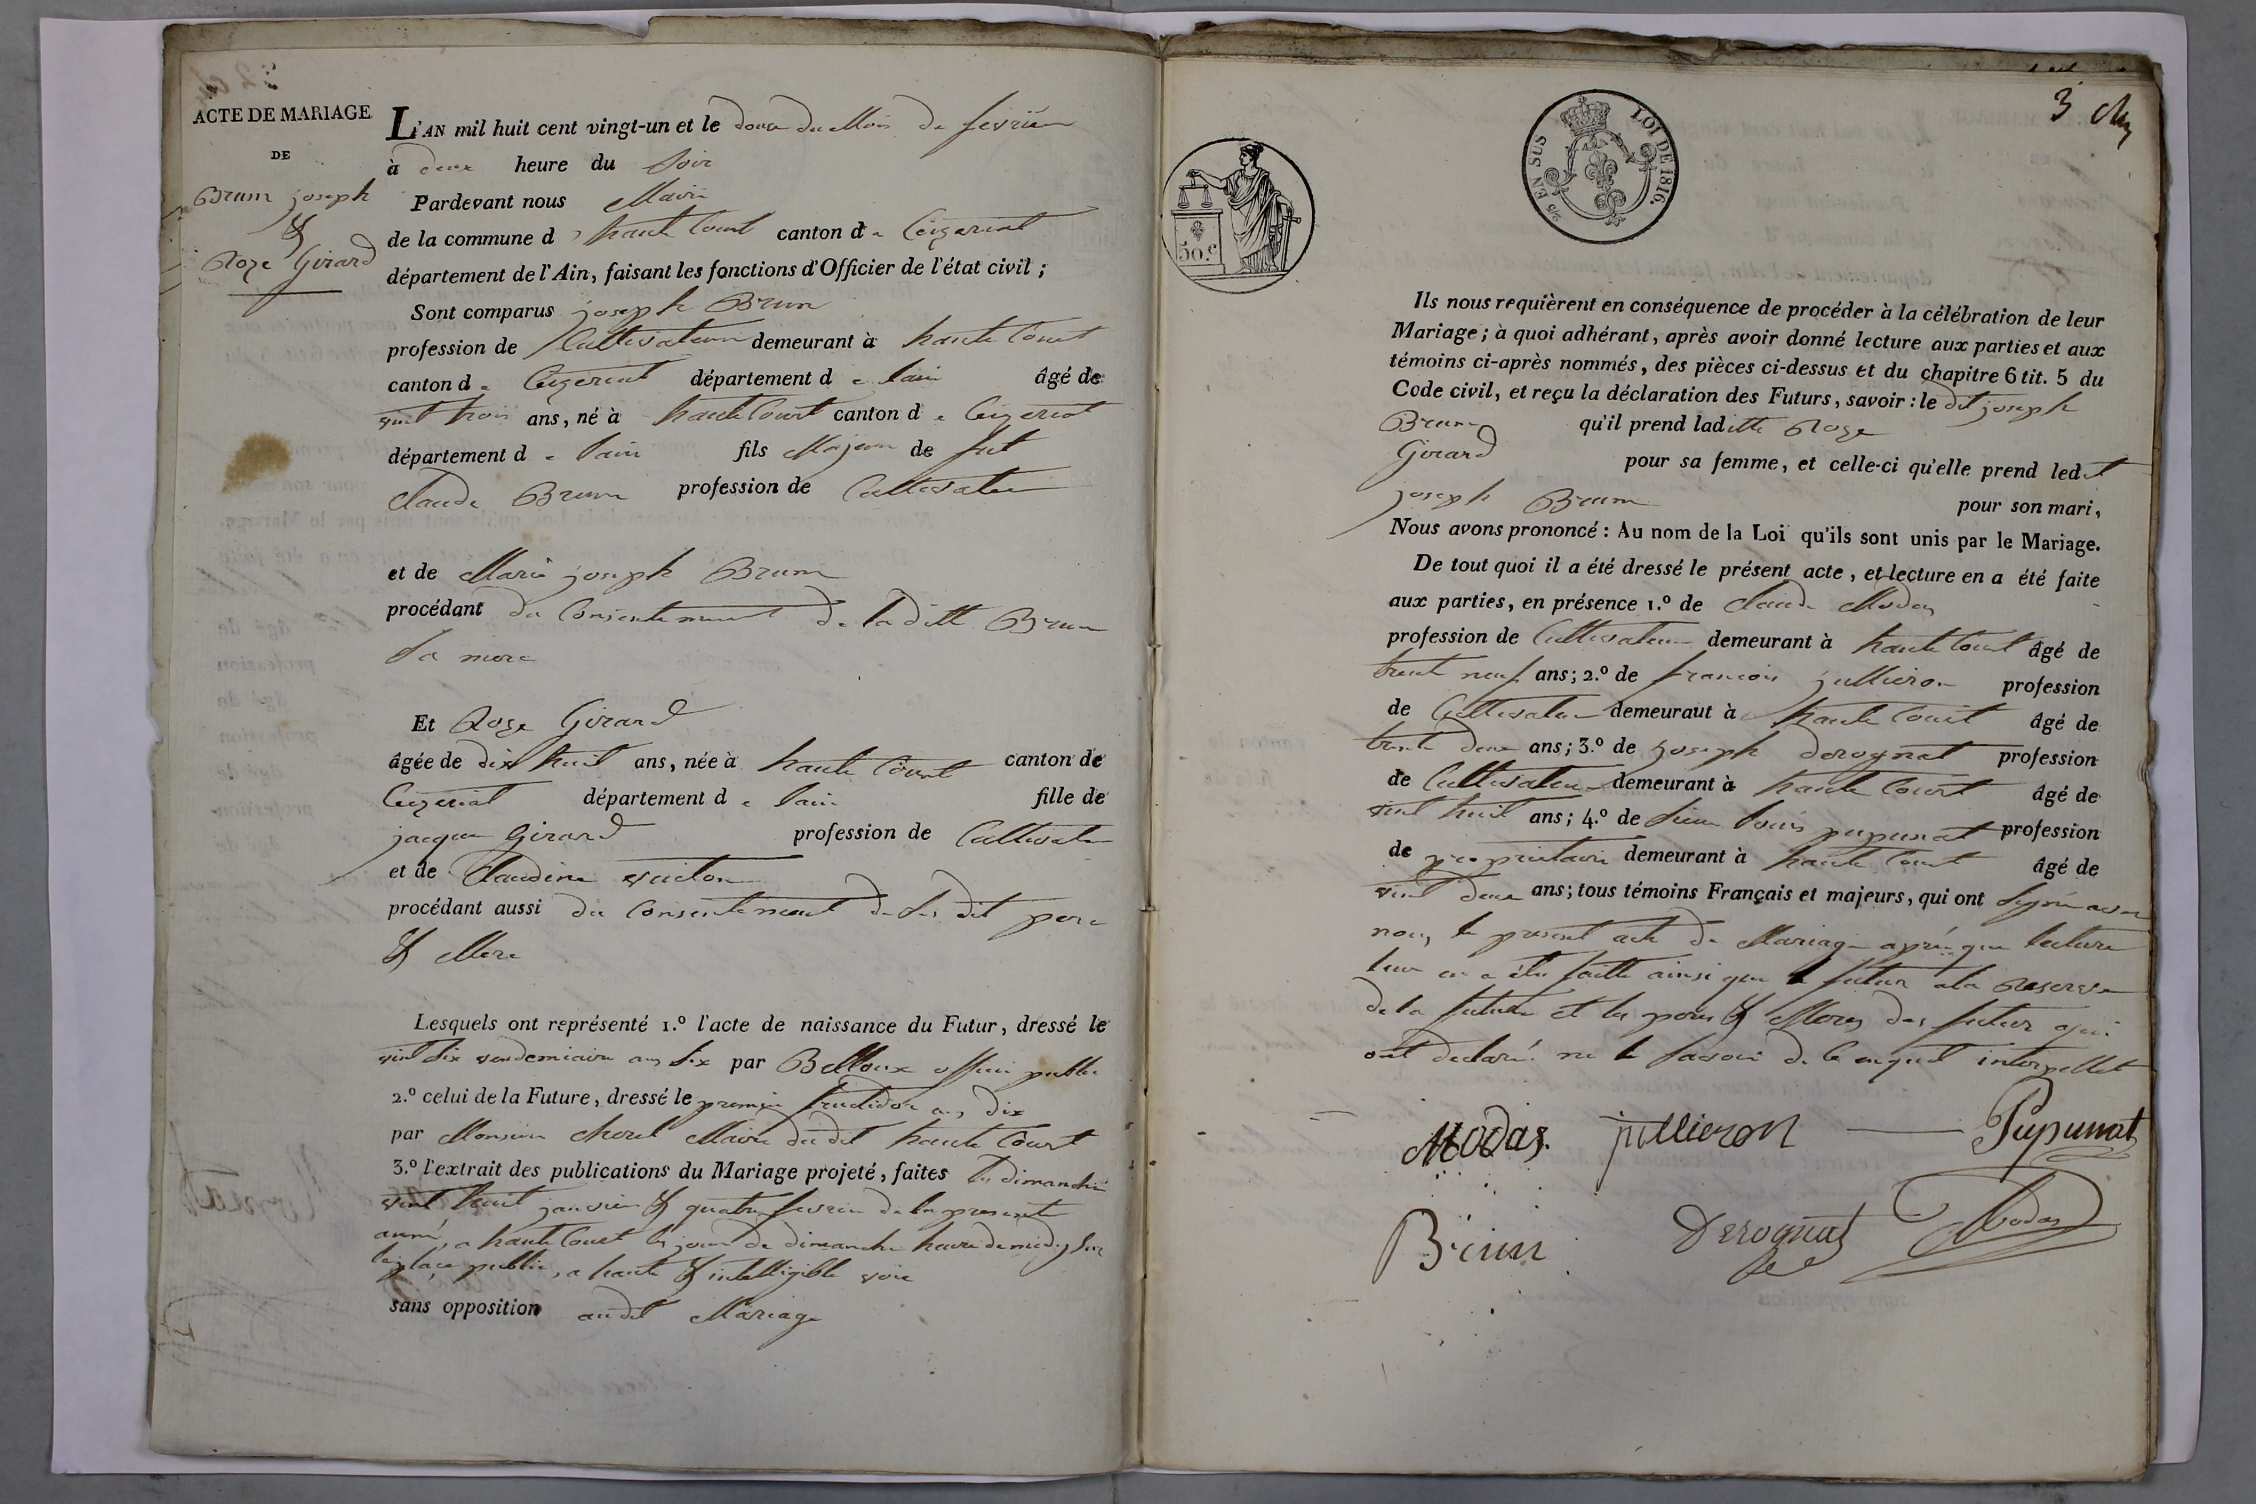 ACTE DE MARIAGE
DE
Brun joseph
&
Roze Girard
L'AN mil huit cent vingt-un et le douze du Mois de fevrier
à deux heure du Soir
Pardevant nous Maire
de la commune d haute Court canton de Ceyzeriat
département de l'Ain, faisant les fonctions d'Officier de l'état civil ;
Sont comparus joseph Brun
profession de Cultivateur demeurant à haute Court
canton de Ceyzeriat département de lain âgé de
vint trois ans, né à haute Court canton de Ceyzeriat
département de lain fils Majeur de fut
Claude Brun profession de Cultivateur
et de Marie joseph Brun
procédant du Consentement de la ditte Brun
Sa mere
Et Roze Girard
âgée de dix huit ans, née à haute Court canton de
Ceyzeriat département de lain fille de
jacque Girard profession de Cultivateur
et de Claudine
procédant aussi du Consentement de Ses dit pere
& Mere
Lesquels ont représenté 1.º l'acte de naissance du Futur, dressé le
vint Six vendemiaire an Six par Belloux officier public
2.º celui de la Future, dressé le premier fructidor an dix
par Monsieur chorel Maire du dit haute Court
3.º l'extrait des publications du Mariage projeté, faites les dimanche
vint huit janvier & quatre fevrier de la presente
année, a haute Court les jour de dimanche heure de midy Sur
la place public, a haute & intelligible voie
sans opposition audit Mariage
50.c
25 EN SUS LOI DE 1816.
3
Ils nous requièrent en conséquence de procéder à la célébration de leur
Mariage ; à quoi adhérant, après avoir donné lecture aux parties et aux
témoins ci-après nommés, des pièces ci-dessus et du chapitre 6 tit. 5 du
Code civil, et reçu la déclaration des Futurs, savoir : le dit joseph
Brun qu'il prend laditte Roze
Girard pour sa femme, et celle-ci qu'elle prend ledit
joseph Brun pour son mari,
Nous avons prononcé : Au nom de la Loi qu'ils sont unis par le Mariage.
De tout quoi il a été dressé le présent acte, et lecture en a été faite
aux parties, en présence 1.º de Claude Modas
profession de Cultivateur demeurant à haute Court âgé de
trent neuf ans; 2.º de francois jullieron profession
de Cultivateur demeuraut à haute Court âgé de
trente deux ans; 3.º de joseph derognat profession
de Cultivateur demeurant à haute Court âgé de
vint huit ans; 4.º de Sieur Louis pupunat profession
de proprietaire demeurant à haute Court âgé de
vint deux ans; tous témoins Français et majeurs, qui ont Signé avec
nous le present acte de Mariage aprés que lecture
leur en a été faitte ainsi que le futur a la Reserve
de la future et les peres & Meres des futur qui
ont declaré ne le Savoir de ce enquit interpellet
Modas. jullieron Pupunat
Brun Derognat Modas